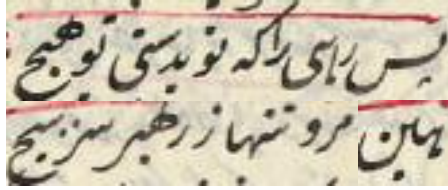 پس راهی را که نو بدستی تو هیچ
هاین مرو تنها ز رهبر سر مپیچ